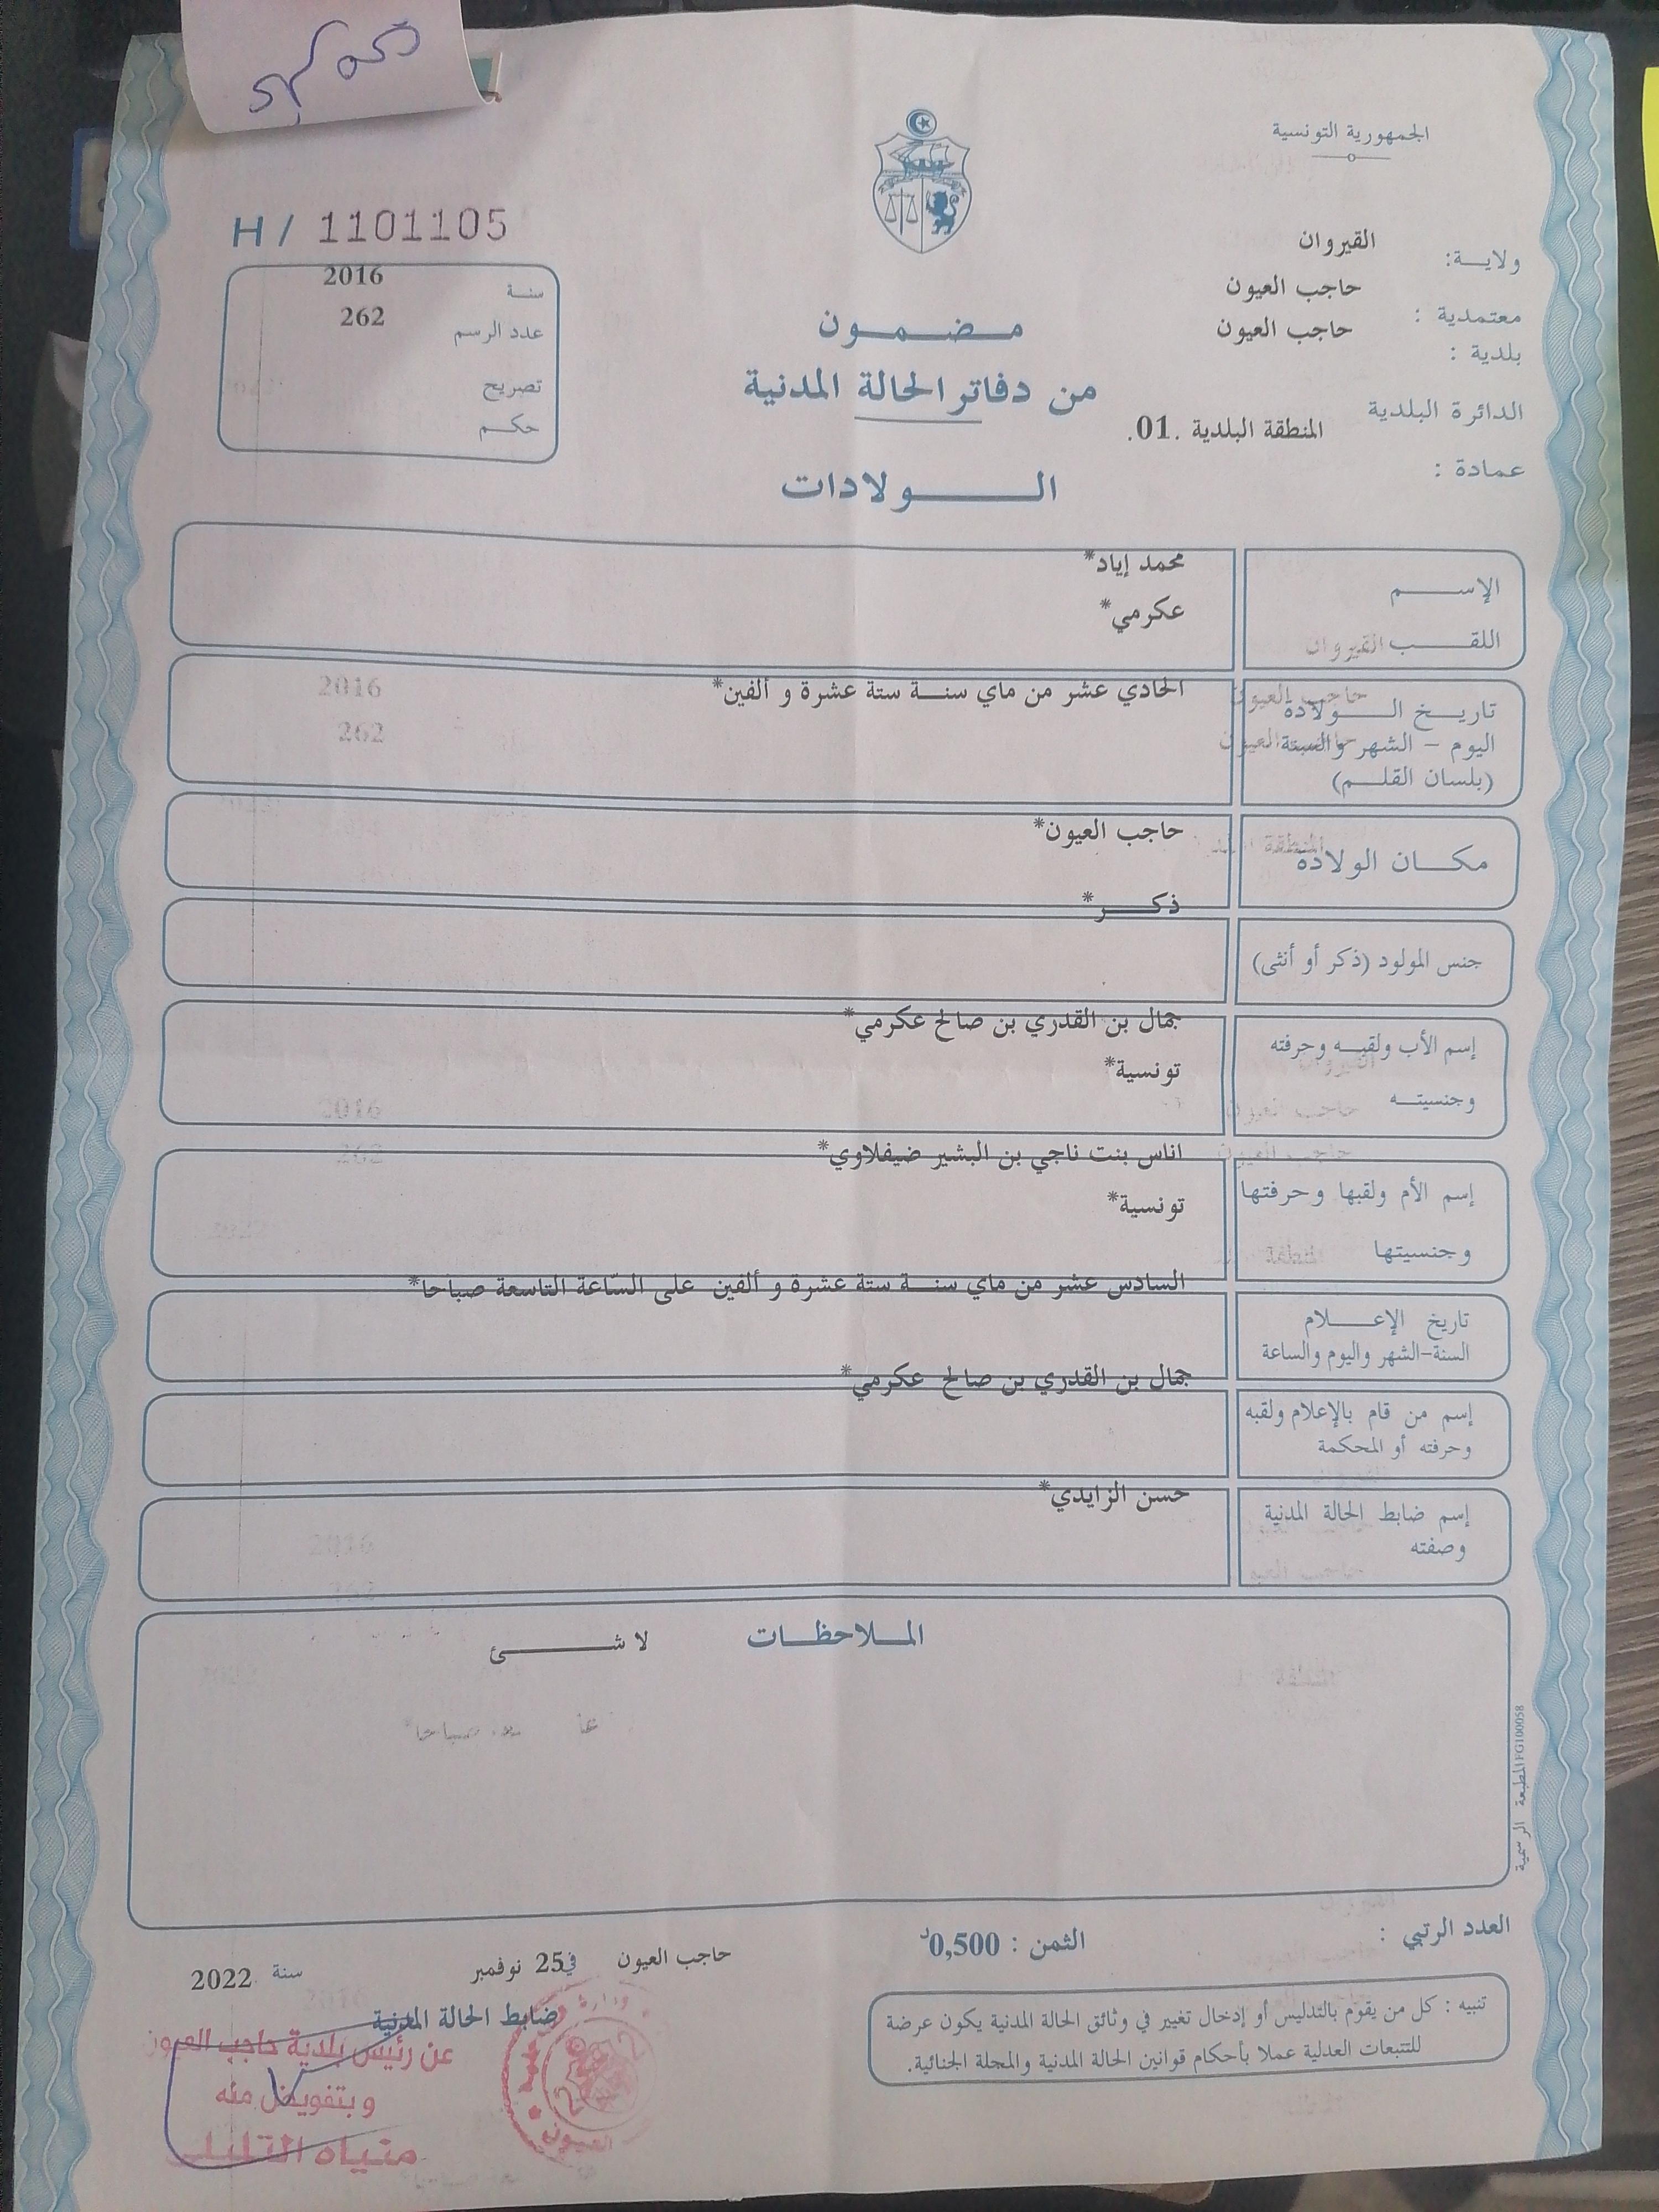 الجمهورية التونسية
ولاية: القيروان
معتمدية : حاجب العيون
بلدية : حاجب العيون
الدائرة البلدية المنطقة البلدية .01.
عمادة :
H / 1101105
سنة 2016
عدد الرسم 262
تصريح
حكم
مضمون
من دفاتر الحالة المدنية
الولادات
الإسم محمد إياد*
اللقب عكرمي*
تاريخ الولادة الحادي عشر من ماي سنة ستة عشرة و ألفين*
اليوم - الشهر والسنة
(بلسان القلم)
مكان الولادة حاجب العيون*
جنس المولود (ذكر أو أنثى) ذكر*
إسم الأب ولقبه وحرفته جمال بن القدري بن صالح عكرمي*
وجنسيته تونسية*
إسم الأم ولقبها وحرفتها اناس بنت ناجي بن البشير ضيفلاوي*
وجنسيتها تونسية*
تاريخ الإعلام السادس عشر من ماي سنة ستة عشرة و ألفين على السّاعة التاسعة صباحا*
السنة-الشهر واليوم والساعة
إسم من قام بالإعلام ولقبه جمال بن القدري بن صالح عكرمي*
وحرفته أو المحكمة
إسم ضابط الحالة المدنية حسن الزايدي*
وصفته
الملاحظات لا شئ
المطبعة الرسمية FG100058
العدد الرتبي :
الثمن : 0,500د
حاجب العيون في 25 نوفمبر سنة 2022
ضابط الحالة المدنية
تنبيه : كل من يقوم بالتدليس أو إدخال تغيير في وثائق الحالة المدنية يكون عرضة
للتتبعات العدلية عملا بأحكام قوانين الحالة المدنية والمجلة الجنائية.
عن رئيس بلدية حاجب العيون
وبتفويض منه